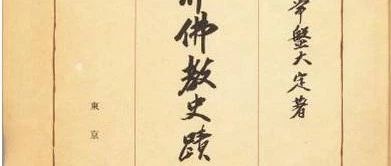 常盤大定著
佛教史蹟
東京